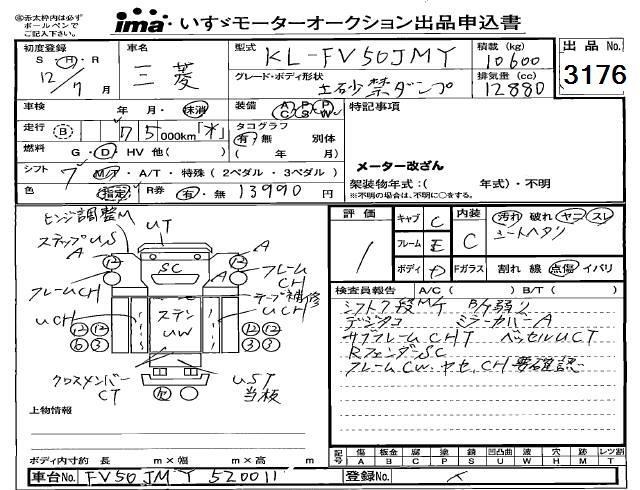 ㊟赤太枠内は必ず
ボールペンで
ご記入下さい。
ima いすゞモーターオークション出品申込書
初度登録
S・H・R
12/7月
車名
三菱
型式 KL-FV50JMY
グレード・ボディ形状
土砂禁ダンプ
積載(kg)
10600
排気量(cc)
12880
出品No.
3176
車検 年・月・抹消
装備 AC PS PW
特記事項
走行 B 75000km「水」
タコグラフ
有・無 別体
( 年 月)
燃料 G・D・HV 他( )
メーター改ざん
シフト 7 M/T・A/T・特殊(2ペダル・3ペダル)
架装物年式:( 年式)・不明
※不明の場合は、不明に○をする。
色 指定 R券 有・無 13990円
ヒンジ調整M
UT
ステップUS
A
A
SC
フレームCH
フレーム
CH
テープ補修
UCH
UCH
ステン
UW
12 12
6 3
12 12
3 3
クロスメンバー
CT
UST
当板
上物情報
ボディ内寸約 長 m×幅 m×高 m
車台No. FV50JMY 520011
評価
キャブ C
フレーム E
ボディ D
内装 C
汚れ 破れ ヤニ スレ
シートヘタリ
Fガラス 割れ 線 点傷 イバリ
検査員報告 A/C( ) B/T( )
シフト7段M/T B/ケ弱り
デジタコ ミラーカバーA
サブフレームCHT ベッセルUCT
RフェンダーSC
フレームCW.ヤセ.CH要確認
記号
傷 板金 腐 塗 錆 凹凸曲 波 穴 跡 レツ割
A B C P S U W H M T
登録No.